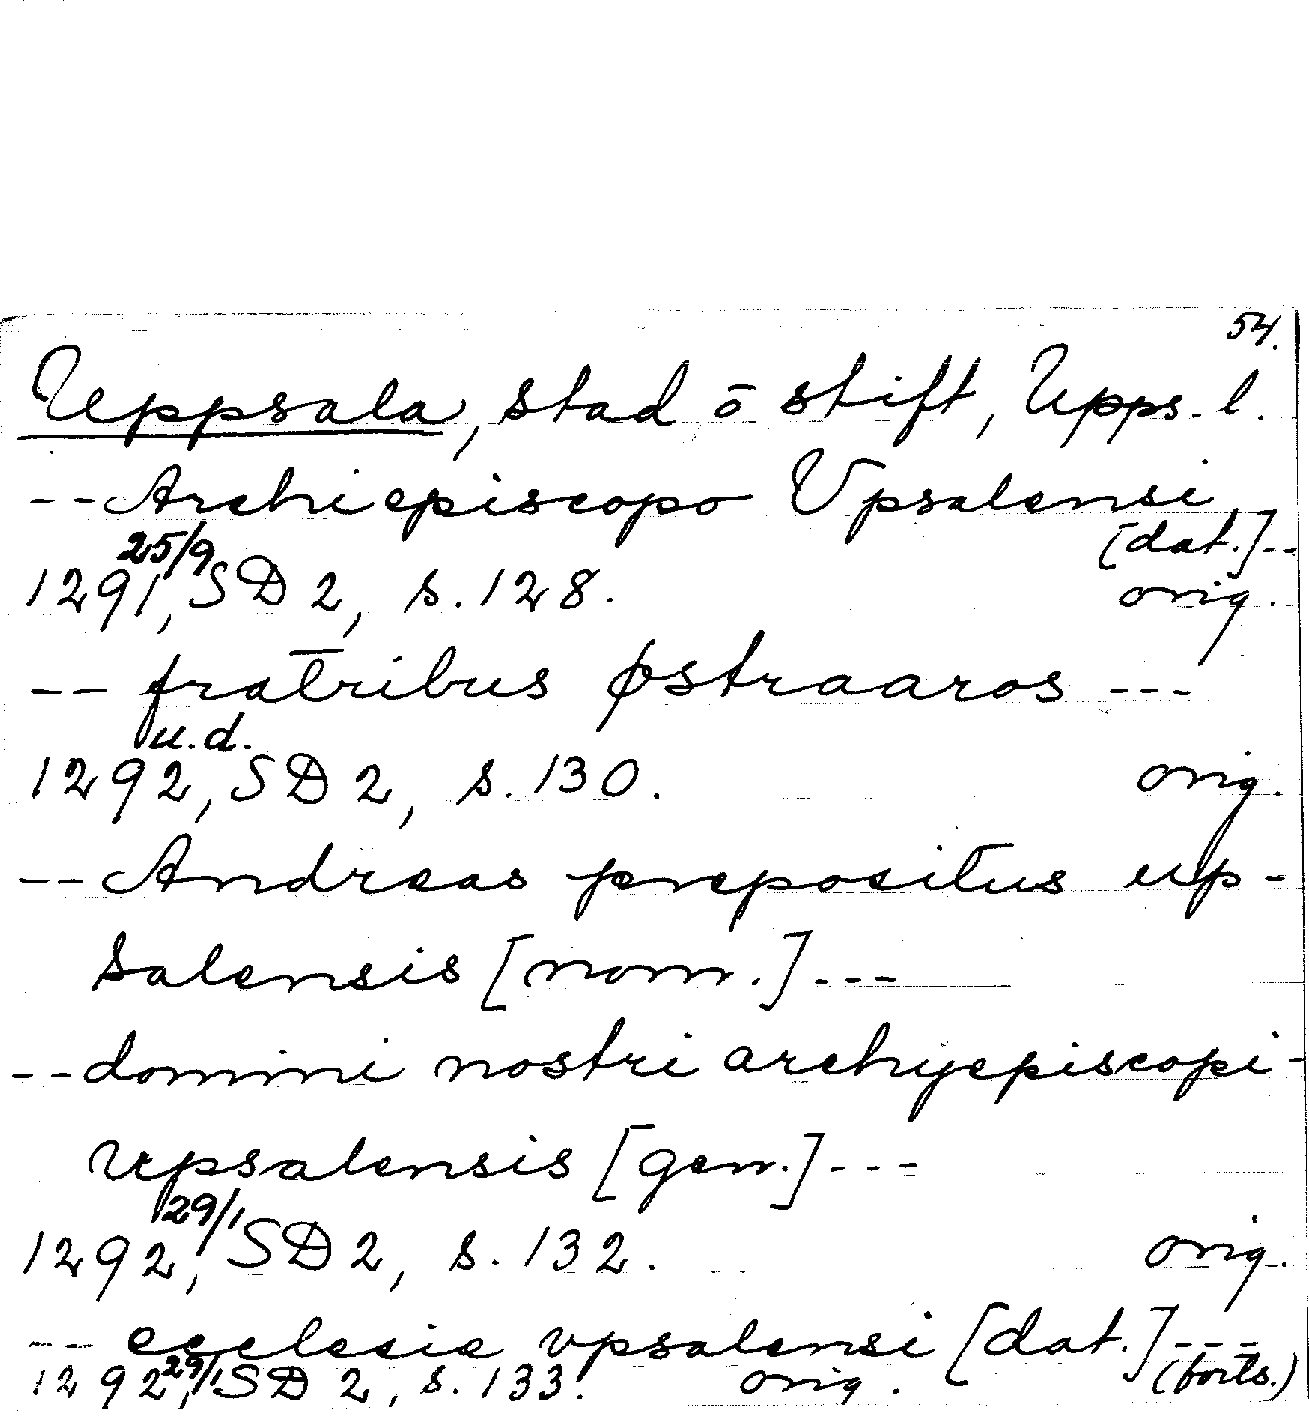 54.
Uppsala, stad o stift, Upps. l.
-- Archiepiscopo Vpsalensi
[dat.]--
25/9
1291, SD 2, s. 128. orig.
-- fratribus østraaros ---
u.d.
1292, SD 2, s. 130. orig.
-- Andreas prepositus up-
salensis [nom.] ---
-- domini nostri archyepiscopi
vpsalensis [gen.] ---
29/1
1292, SD 2, s. 132. orig.
-- ecclesie vpsalensi [dat.] ---
1292 29/1, SD 2, s. 133. orig. (forts.)